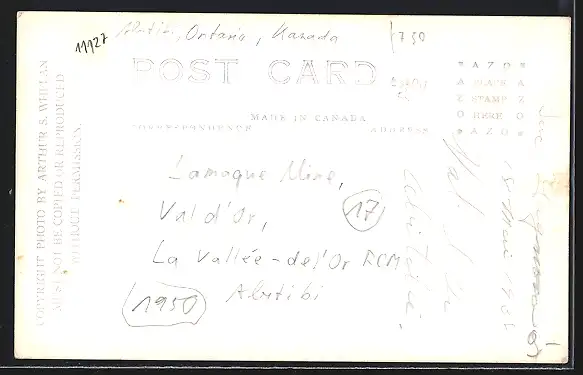 11927 Abitibi, Ontario, Kanada
POST CARD
MADE IN CANADA
CORRESPONDENCE ADDRESS
AZO
PLACE
STAMP
HERE
AZO
Lamaque Mine,
Val d'Or, 17
La Vallée-de-l'Or RCM
Abitibi
1950
COPYRIGHT PHOTO BY ARTHUR S. WHELAN
MUST NOT BE COPIED OR REPRODUCED
WITHOUT PERMISSION.
Val d'Or
Abitibi,